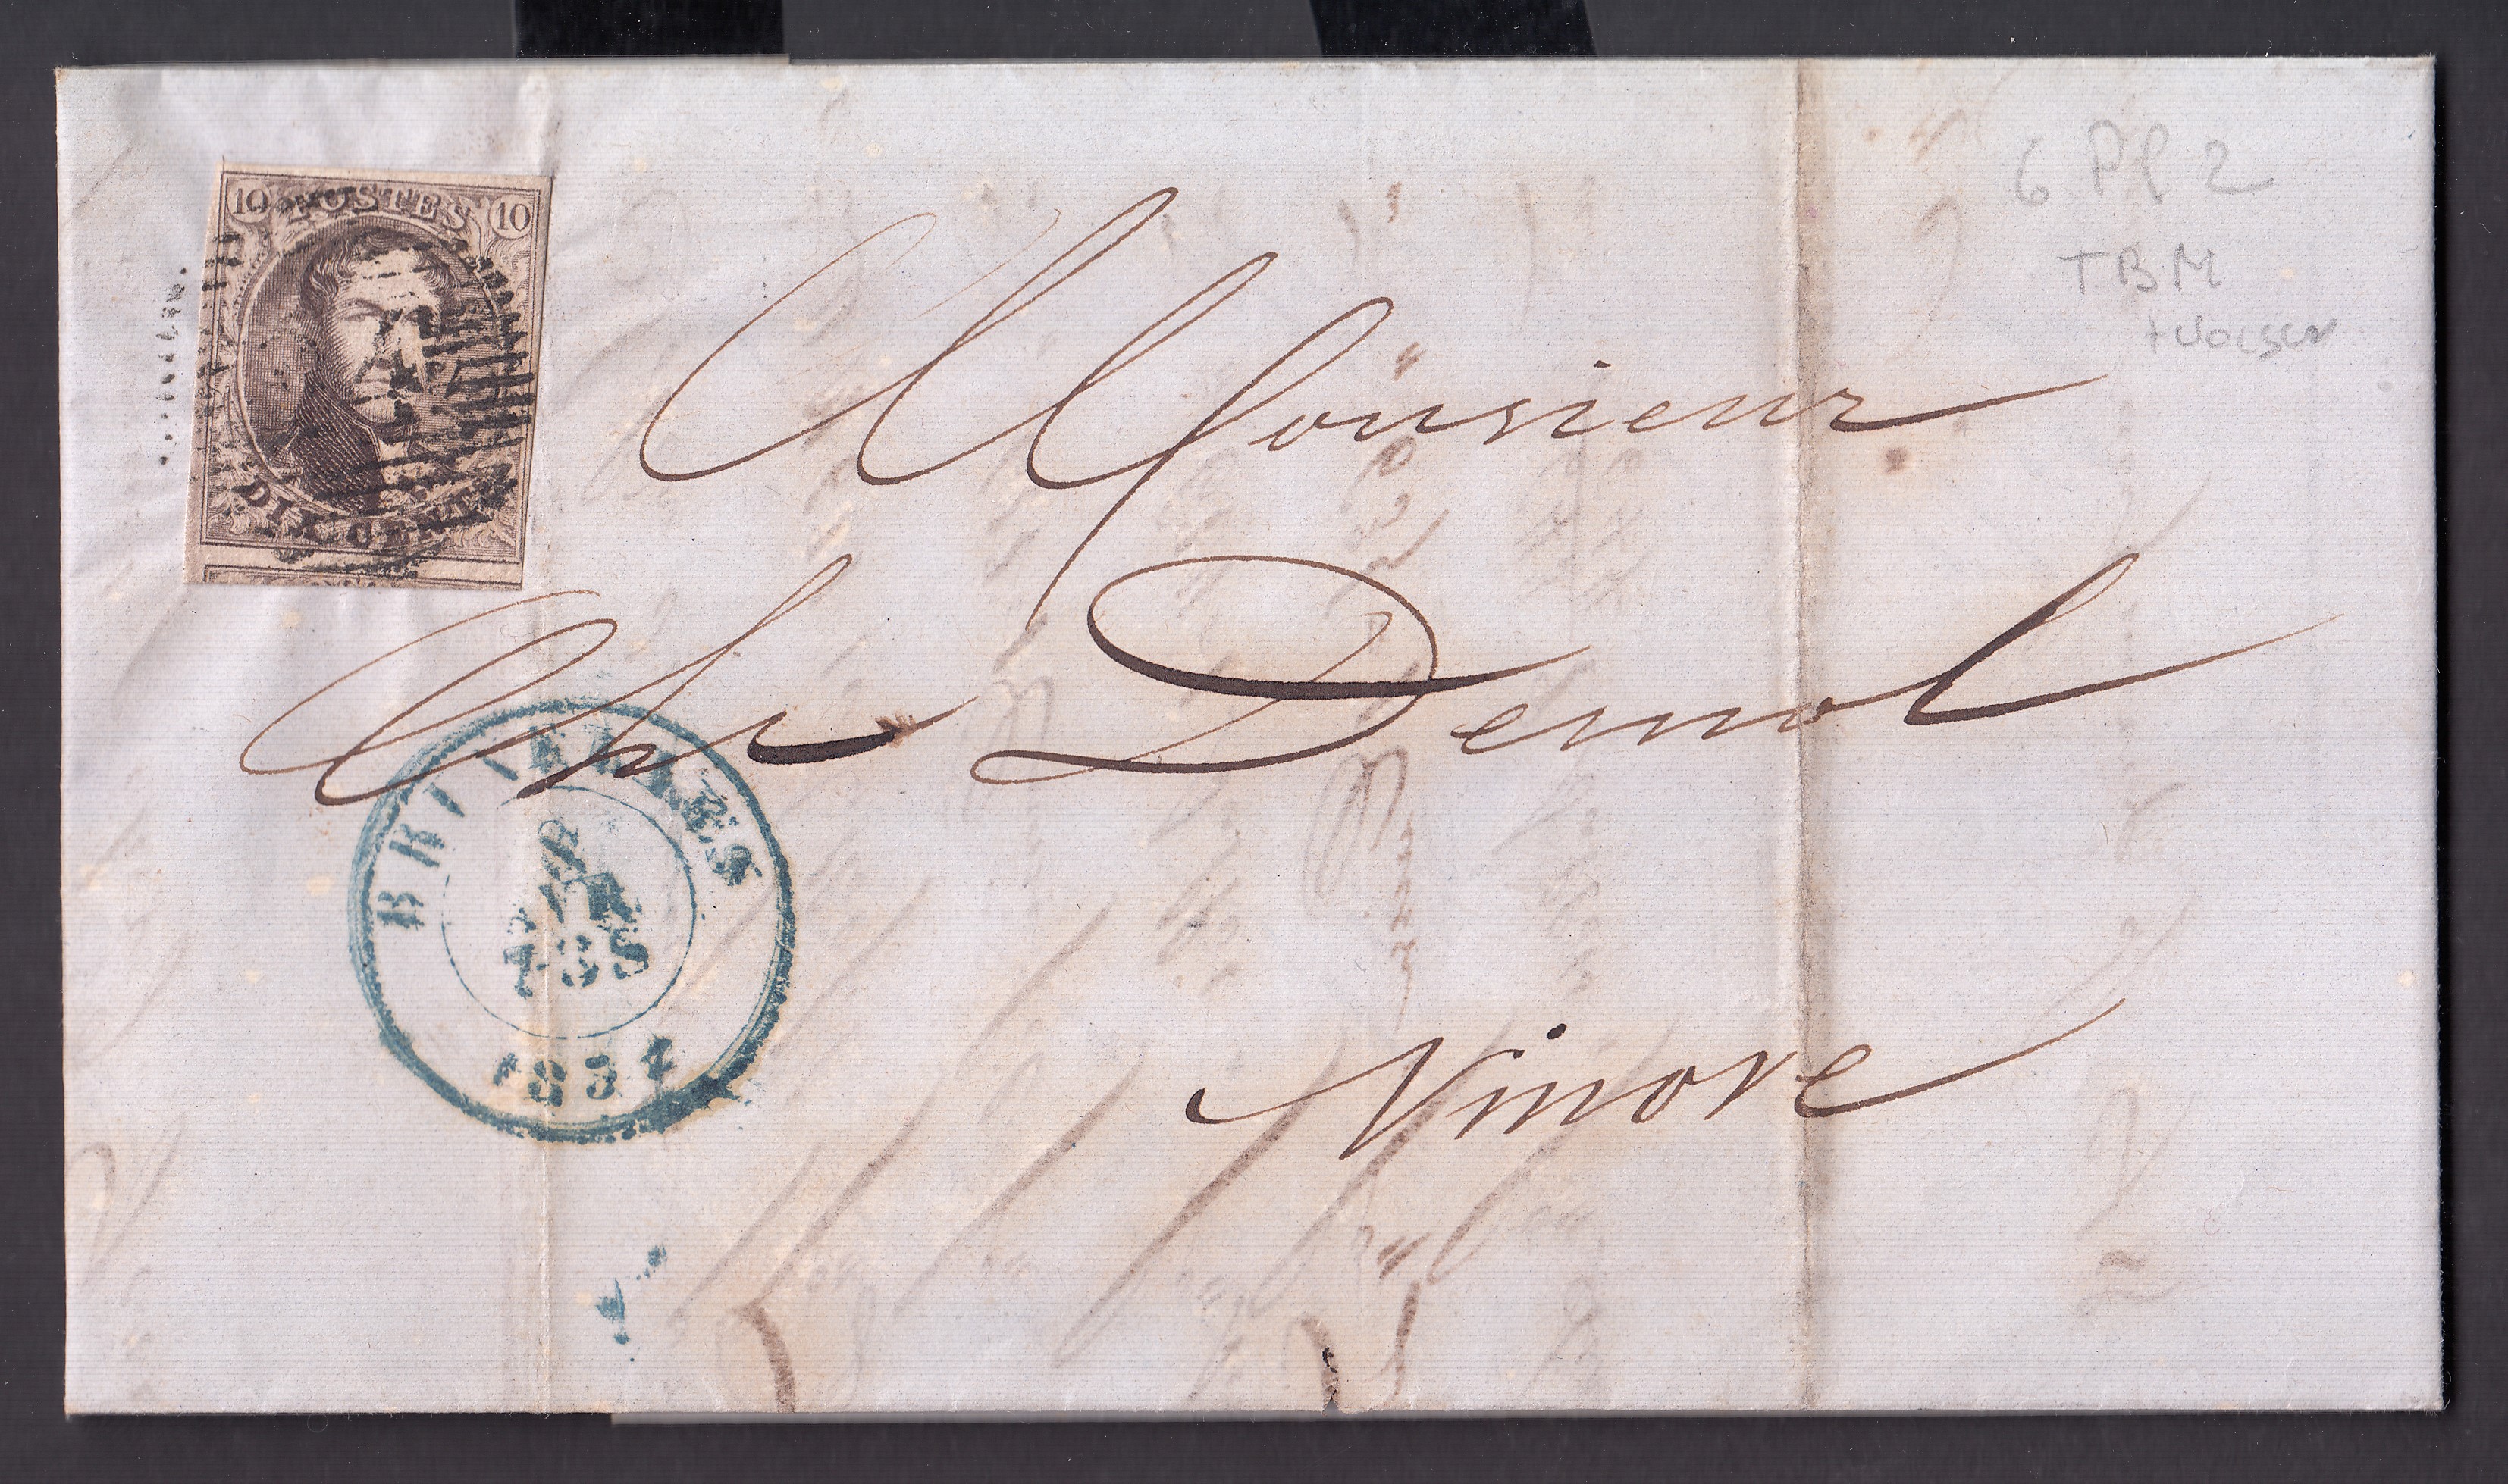 10 POSTES 10
DIX CENTS
6 Pl 2
TBM
+ voisin
Monsieur
Ch Demol
Ninove
BRUXELLES
7-8S
1854